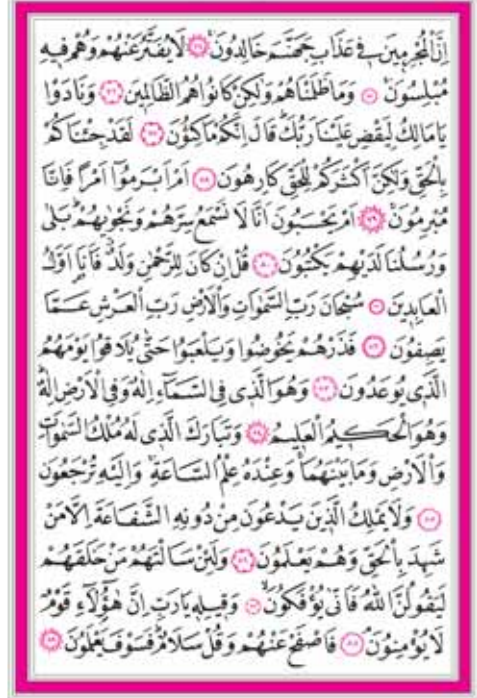 اِنَّ الْمُجْرِمِينَ فِى عَذَابِ جَهَنَّمَ خَالِدُونَۚ ﴿٧٤﴾ لَا يُفَتَّرُ عَنْهُمْ وَهُمْ فِيهِ
مُبْلِسُونَۚ ﴿٧٥﴾ وَمَا ظَلَمْنَاهُمْ وَلٰكِنْ كَانُوا هُمُ الظَّالِمِينَ ﴿٧٦﴾ وَنَادَوْا
يَامَالِكُ لِيَقْضِ عَلَيْنَا رَبُّكَۜ قَالَ اِنَّكُمْ مَاكِثُونَ ﴿٧٧﴾ لَقَدْ جِئْنَاكُمْ
بِالْحَقِّ وَلٰكِنَّ اَكْثَرَكُمْ لِلْحَقِّ كَارِهُونَ ﴿٧٨﴾ اَمْ اَبْرَمُٓوا اَمْرًا فَاِنَّا
مُبْرِمُونَۚ ﴿٧٩﴾ اَمْ يَحْسَبُونَ اَنَّا لَا نَسْمَعُ سِرَّهُمْ وَنَجْوٰيهُمْۜ بَلٰى
وَرُسُلُنَا لَدَيْهِمْ يَكْتُبُونَ ﴿٨٠﴾ قُلْ اِنْ كَانَ لِلرَّحْمٰنِ وَلَدٌۗ فَاَنَا۬ اَوَّلُ
الْعَابِدِينَ ﴿٨١﴾ سُبْحَانَ رَبِّ السَّمٰوَاتِ وَالْاَرْضِ رَبِّ الْعَرْشِ عَمَّا
يَصِفُونَ ﴿٨٢﴾ فَذَرْهُمْ يَخُوضُوا وَيَلْعَبُوا حَتّٰى يُلَاقُوا يَوْمَهُمُ
الَّذِى يُوعَدُونَ ﴿٨٣﴾ وَهُوَ الَّذِى فِى السَّمَٓاءِ اِلٰهٌ وَفِى الْاَرْضِ اِلٰهٌۜ
وَهُوَ الْحَكِيمُ الْعَلِيمُ ﴿٨٤﴾ وَتَبَارَكَ الَّذِى لَهُ مُلْكُ السَّمٰوَاتِ
وَالْاَرْضِ وَمَا بَيْنَهُمَاۚ وَعِنْدَهُ عِلْمُ السَّاعَةِۚ وَاِلَيْهِ تُرْجَعُونَ
﴿٨٥﴾ وَلَا يَمْلِكُ الَّذِينَ يَدْعُونَ مِنْ دُونِهِ الشَّفَاعَةَ اِلَّا مَنْ
شَهِدَ بِالْحَقِّ وَهُمْ يَعْلَمُونَ ﴿٨٦﴾ وَلَئِنْ سَاَلْتَهُمْ مَنْ خَلَقَهُمْ
لَيَقُولُنَّ اللّٰهُ فَاَنّٰى يُؤْفَكُونَۙ ﴿٨٧﴾ وَقِيلِهِ يَارَبِّ اِنَّ هٰٓؤُلَٓاءِ قَوْمٌ
لَا يُؤْمِنُونَۢ ﴿٨٨﴾ فَاصْفَحْ عَنْهُمْ وَقُلْ سَلَامٌۜ فَسَوْفَ يَعْلَمُونَ ﴿٨٩﴾